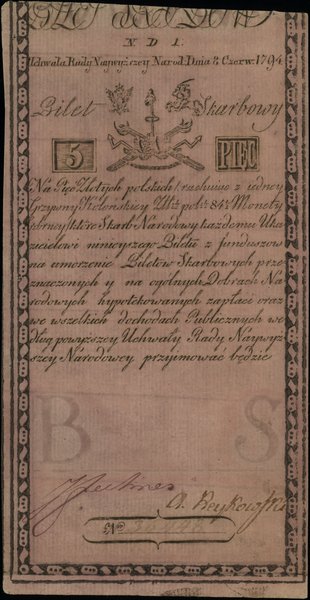 N D 1.
Uchwała Rady Naywyższey Narod. Dnia 8 Czerw. 1794
Bilet Skarbowy
5 PIĘC
Na Pięć Złotych polskich rachuiąc z iedney
Grzywny Kolońskiey 84½ Monety
Srebrney które Skarb Narodowy każdemu Uka
zicielowi ninieyszego Biletu z funduszow
na umorzenie Biletow Skarbowych prze
znaczonych y na ogólnych Dobrach Na
rodowych hypotekowanych zapłaci oraz
we wszelkich dochodach Publicznych we
dług powyższey Uchwały Rady Naywyż
szey Narodowey przyimować będzie
B S
A. Reykowski
№